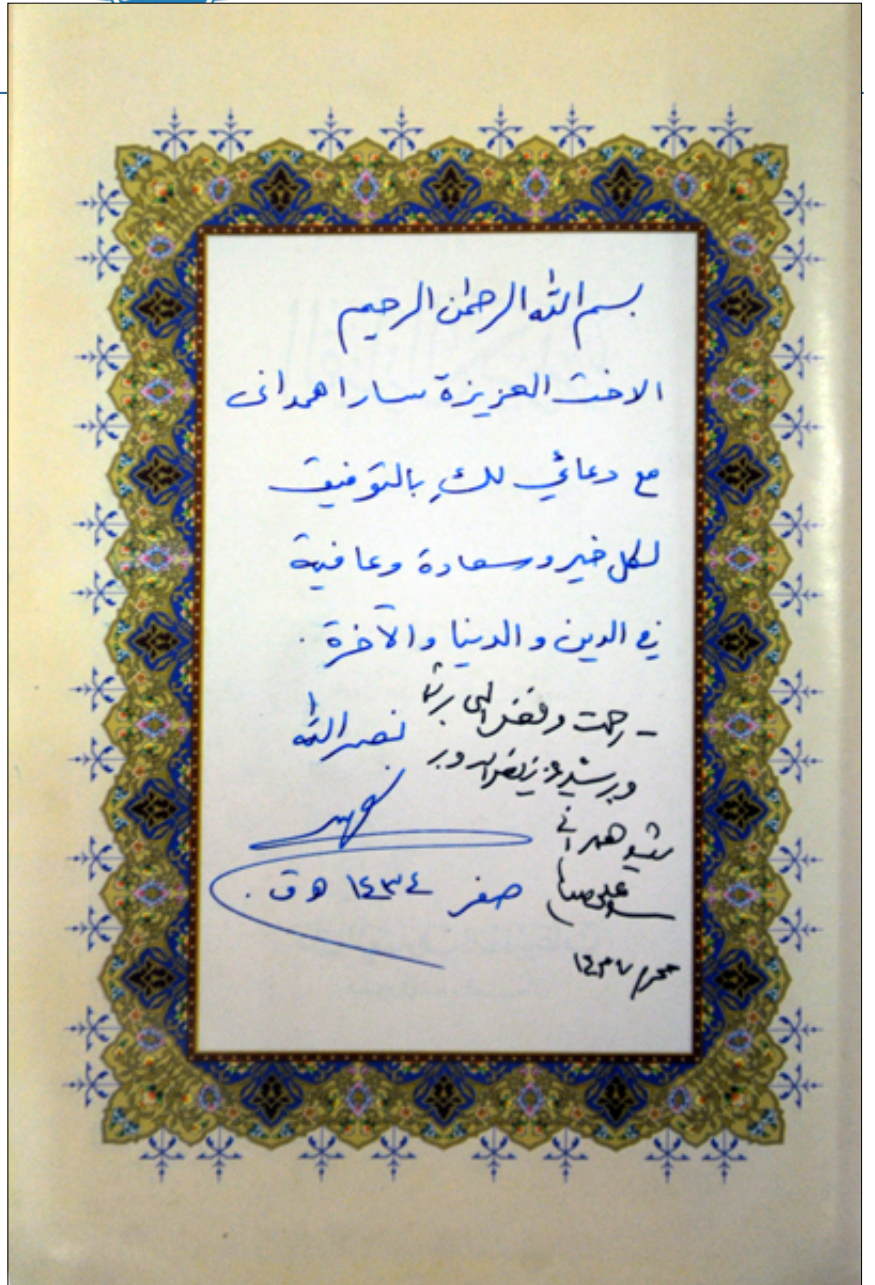 بسم الله الرحمن الرحيم
الاخت العزيزة سارا همدانى
مع دعائي لكِ بالتوفيق
لكل خير وسعادة وعافية
في الدين والدنيا والآخرة .
نصر الله
صفر ١٤٣٤ ه ق .
- رحمت و فضل الهى بر
و بر شهيد عزيز
شهيد همدانى
سيد على
محرم ١٤٣٧